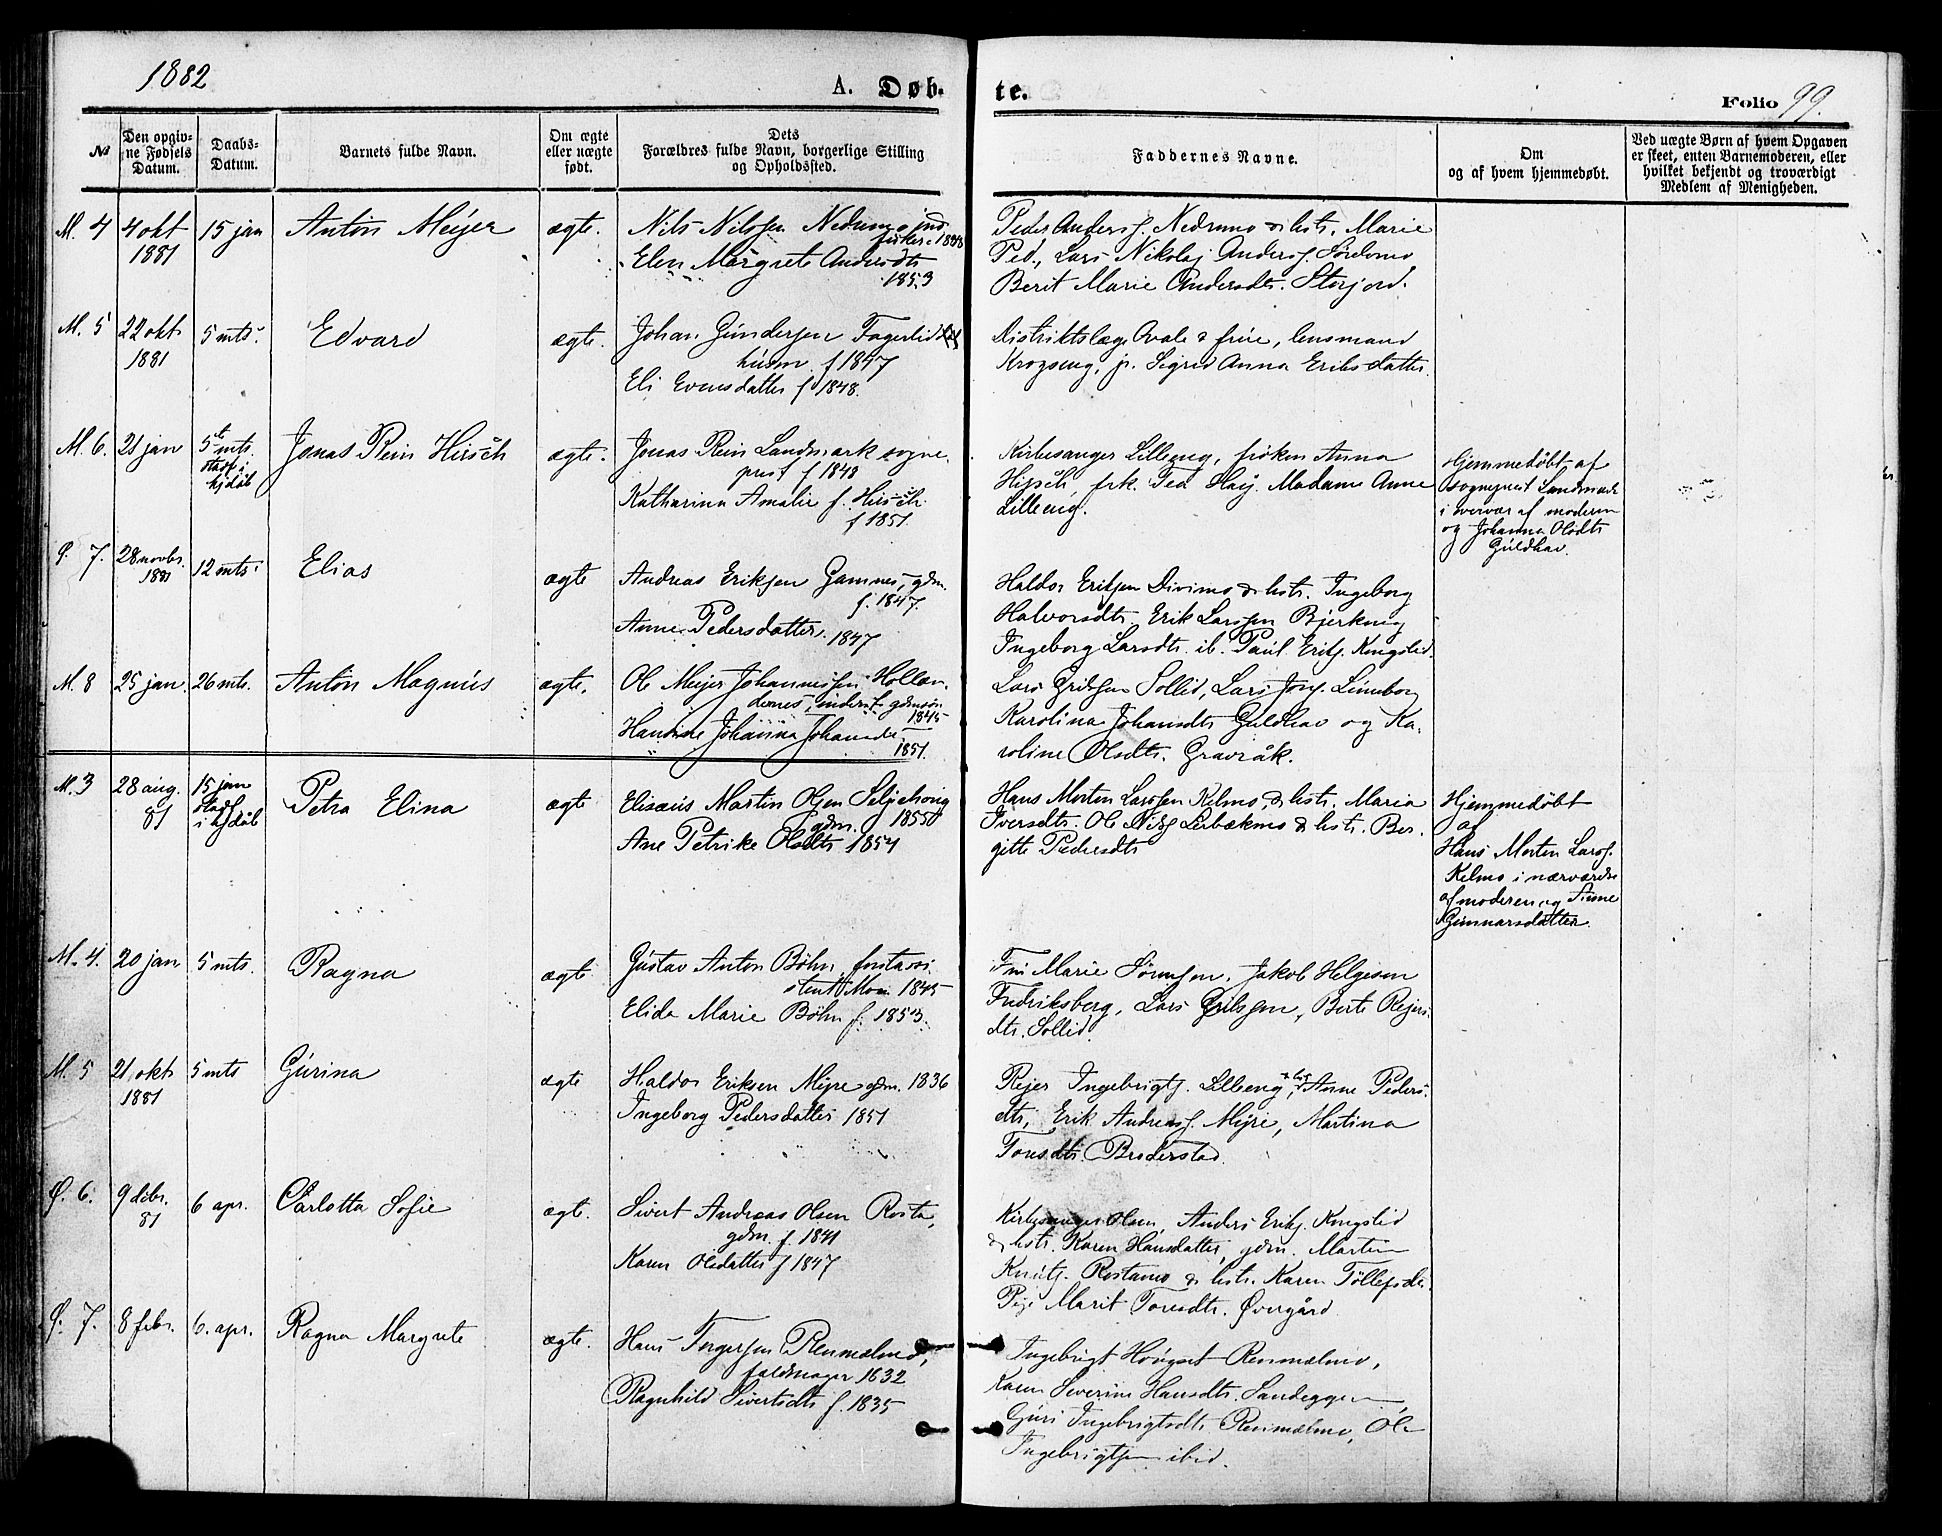 1882
A. Døb-
te.
Folio 99.
No
Den opgiv-
ne Fødsels
Datum.
Daabs-
Datum.
Barnets fulde Navn.
Om ægte
eller uægte
født.
Dets
Forældres fulde Navn, borgerlige Stilling
og Opholdssted.
Faddernes Navne.
Om
og af hvem hjemmedøbt.
Ved uægte Børn af hvem Opgaven
er skeet, enten Barnemoderen, eller
hvilket bekjendt og troværdigt
Medlem af Menigheden.
M. 4
4 okt
1881
15 jan
Anton Meÿer
ægte.
Nils Nilssen Nedrumo
Elen Margrete Andersdtr
1853
Peder Anders. Nedrumo & hstr. Marie
Ped., Lars Nikolaj Anders. Sørdomo
Berit Marie Andersdtr. Storjord.
M. 5
22 okt
1881
5 mts.
Edvard
ægte.
Johan Gundersen Fagerlid
husm. f 1847
Eli Evensdatter f 1848.
Distriktslæge Qvale & frue, lensmand
Krogseng, jr. Sigrid Anna Eriksdatter.
M. 6.
21 jan
5te mts.
stadf. i
hjdåb
Jonas Rein Hirsch
ægte.
Jonas Rein Landmark sogne-
prest f 1848
Katharina Amalie f. Hirsch
f 1851.
Kirkesanger Lilleeng, frøken Anna
Hirsch, frk. Tea Maÿ. Madame Anne
Lilleeng.
Hjemmedøbt af
sogneprest Landmark
i overvær af moderen
og Johanna Olsdtr
Guldhav.
Ø. 7.
28 novbr.
1881
12 mts.
Elias
ægte
Andreas Eriksen Gamnes, gdm.
f. 1847.
Anne Pedersdatter. 1847
Haldor Eriksen Divimo & hstr. Ingeborg
Halvorsdtr. Erik Larssen Bjerkeng
Ingeborg Larsdtr. ib. Paul Eriks. Kongslid.
M. 8
25 jan.
26 mts.
Anton Magnus
ægte.
Ole Meÿer Johannessen Hollæn-
dernes, inderst, gdmsøn
1845
Hansine Johanna Johansdtr
1851.
Lars Eriksen Sollid, Lars Jons. Luneborg
Karolina Johansdtr Guldhav og Ka-
roline Olsdtr. Gravråk.
M. 3
28 aug.
81
15 jan
stadf.
i hjdåb
Petra Elina
ægte
Elisæus Martin Olsen Seljehoug
gdm. 1855
Ane Petrike Olsdtr 1854
Hans Morten Larssen Kelmo, & hstr. Maria
Iversdtr. Ole Nils. Lerbækmo & hstr. Ber-
gitte Pedersdtr
Hjemmedøbt
af
Hans Morten Lars.
Kelmo i nærværelse
af moderen og Anne
Gunnarsdatter.
M. 4.
20 jan
5 mts.
Ragna
ægte
Gustav Anton Bøhn, forstassi-
stent Moen 1845
Elida Marie Bøhn f. 1853.
Fru Marie Sørensen. Jakob Helgesen
Fredriksberg, Lars Eriksen, Berte Rejers-
dtr. Sollid.
M. 5
21. okt
1881
5 mts
Gurina
ægte
Haldor Eriksen Mÿre gdm. 1836
Ingeborg Pedersdatter 1851
Rejer Ingebrigts. Lilleeng & hstr Anne Peders-
dtr, Erik Andreas. Mÿre, Martina
Tomsdtr. Broderstad.
Ø. 6.
9 debr.
81
6 apr.
Carlotta Sofie
ægte.
Sivert Andreas Olsen Rosta,
gdm. f. 1841
Karen Olsdatter f 1847
Kirkesanger Olsen, Anders Eriks. Kongslid
& hstr. Karen Hansdatter, gdm. Martin
Knuts. Rostamo & hstr. Karen Tollefsdtr.
Pige Marit Tomsdtr. Øvergård.
Ø. 7.
8 febr.
6. apr.
Ragna Margrete
ægte.
Hans Torgersen Renmælmo,
faldmager 1832
Ragnhild Sivertsdtr f. 1835
Ingebrigt Hougset Renmælmo,
Karen Severine Hansdtr. Sandeggen
Guri Ingebrigtsdtr Renmælmo, Ole
Ingebrigtsen ibid.